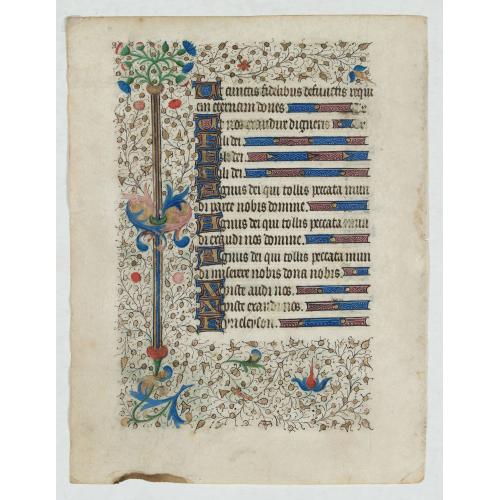 Ut cunctis fidelibus defunctis requi
em eternam dones
Ut nos exaudire digneris
Fili dei
Fili dei
Fili dei
Agnus dei qui tollis peccata mun
di parce nobis domine
Agnus dei qui tollis peccata mun
di exaudi nos domine.
Agnus dei qui tollis peccata mun
di miserere nobis dona nobis.
Xpiste audi nos.
Xpiste exaudi nos.
Kyrieleyson.